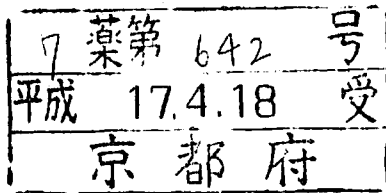 7薬第642号
平成 17.4.18 受
京都府